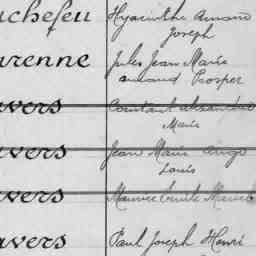 uchefeu Hyacinthe Armand
Joseph
arenne Jules Jean Marie
armand Prosper
avers Constant alexandre
Marie
avers Jean Marie ange
Louis
avers Maurice Emile Marcel
avers Paul Joseph Henri